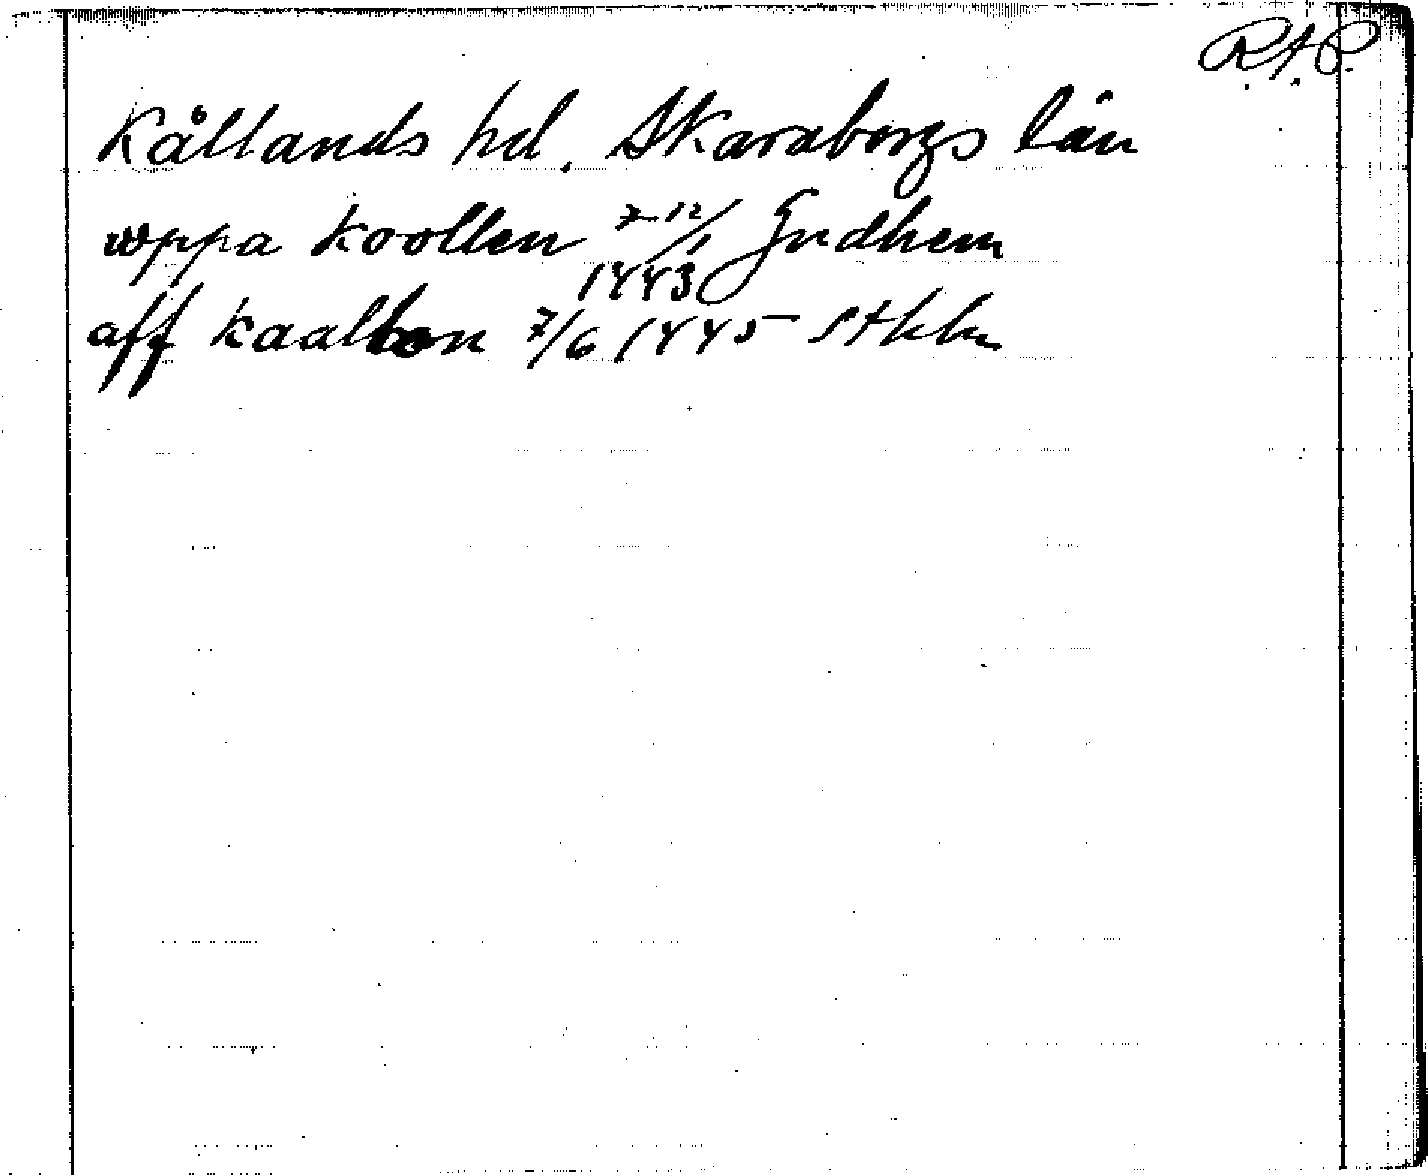 R.A.P.
Kållands hd. Skaraborgs län
wppa koollen 7-12/1 Gudhem
1443
aff kaallen 7/6 1445 Sthlm